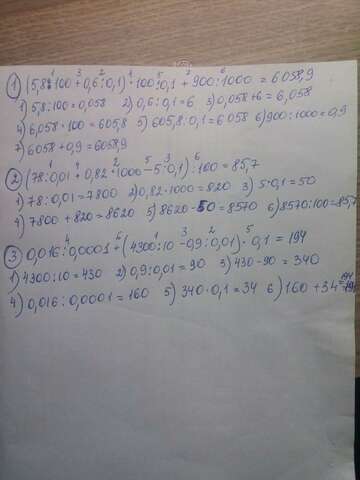 1) (5,8:100 + 0,6:0,1) · 100 : 0,1 + 900:1000 = 6058,9
1) 5,8:100=0,058 2) 0,6:0,1=6 3) 0,058+6=6,058
4) 6,058·100=605,8 5) 605,8:0,1=6058 6) 900:1000=0,9
7) 6058+0,9=6058,9
2) (78:0,01 + 0,82·1000 - 5:0,1) : 100 = 85,7
1) 78:0,01=7800 2) 0,82·1000=820 3) 5:0,1=50
4) 7800+820=8620 5) 8620-50=8570 6) 8570:100=85,7
3) 0,016:0,0001 + (4300:10 - 0,9:0,01) · 0,1 = 194
1) 4300:10=430 2) 0,9:0,01=90 3) 430-90=340
4) 0,016:0,0001=160 5) 340·0,1=34 6) 160+34=194